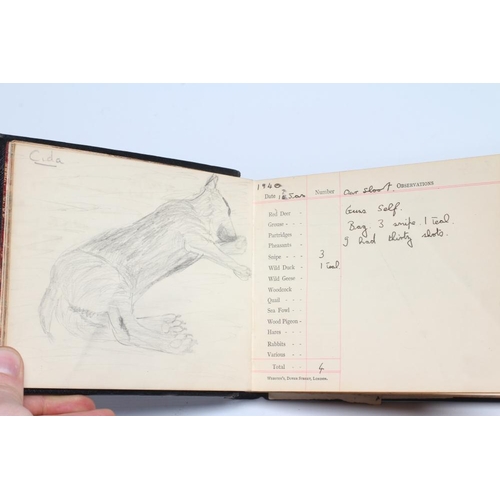 Cida
1940
Date 1st Jan Number Our shoot. OBSERVATIONS
Red Deer - Guns Self.
Grouse - - Bag 3 snipe 1 Teal.
Partridges - I had thirty shots.
Pheasants -
Snipe - - 3
Wild Duck - 1 Teal
Wild Geese -
Woodcock -
Quail - -
Sea Fowl - -
Wood Pigeon -
Hares - -
Rabbits - -
Various - -
Total - - 4
LONDON.